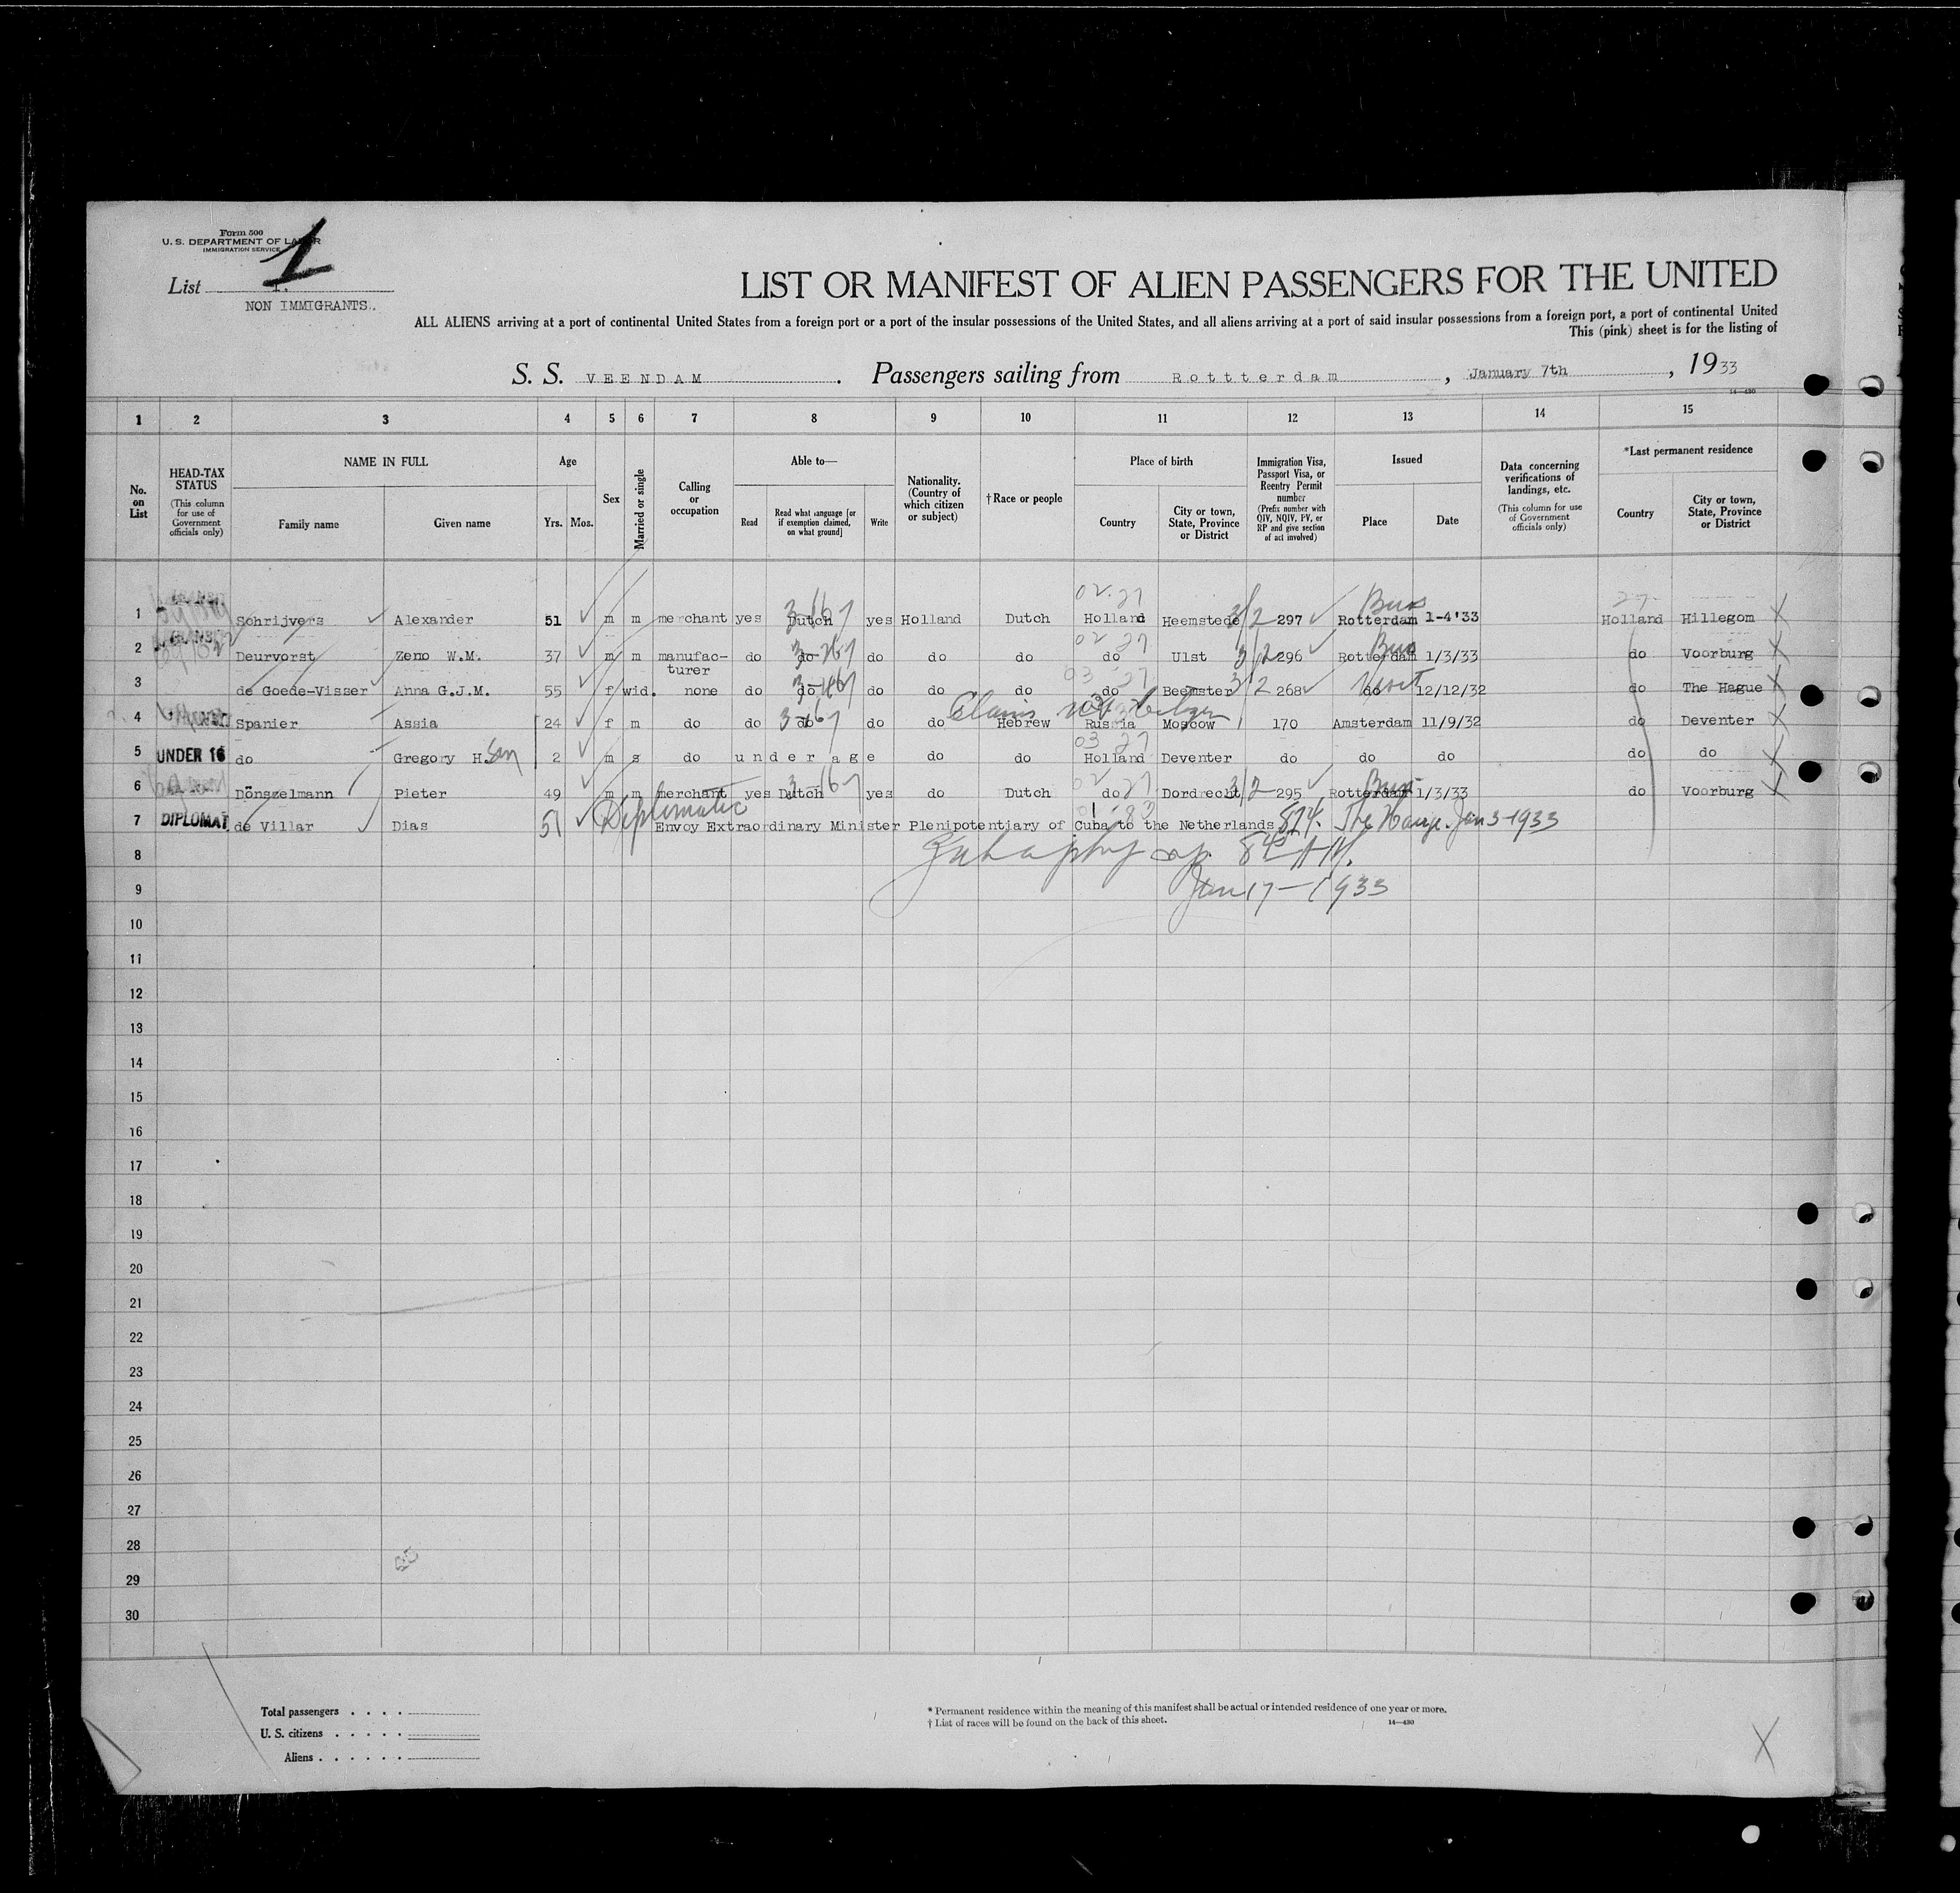 Form 500
U. S. DEPARTMENT OF LABOR
IMMIGRATION SERVICE
1
List 1.
NON IMMIGRANTS.
LIST OR MANIFEST OF ALIEN PASSENGERS FOR THE UNITED
ALL ALIENS arriving at a port of continental United States from a foreign port or a port of the insular possessions of the United States, and all aliens arriving at a port of said insular possessions from a foreign port, a port of continental United
This (pink) sheet is for the listing of
S. S. VEENDAM . Passengers sailing from Rottterdam , January 7th , 1933
14—430
1 2 3 4 5 6 7 8 9 10 11 12 13 14 15
No. on List
HEAD-TAX STATUS (This column for use of Government officials only)
NAME IN FULL Family name Given name
Age Yrs. Mos.
Sex
Married or single
Calling or occupation
Able to— Read Read what language [or if exemption claimed, on what ground] Write
Nationality. (Country of which citizen or subject)
† Race or people
Place of birth Country City or town, State, Province or District
Immigration Visa, Passport Visa, or Reentry Permit number (Prefix number with QIV, NQIV, PV, or RP and give section of act involved)
Issued Place Date
Data concerning verifications of landings, etc. (This column for use of Government officials only)
*Last permanent residence Country City or town, State, Province or District
02 27 Bus 27
1 Schrijvers Alexander 51 m m merchant yes Dutch yes Holland Dutch Holland Heemstede 3/2 297 Rotterdam 1-4'33 Holland Hillegom
02 27 Bus
2 Deurvorst Zeno W.M. 37 m m manufacturer do do do do do do Ulst 3/2 296 Rotterdam 1/3/33 do Voorburg
03 27 Visit
3 de Goede-Visser Anna G.J.M. 55 f wid. none do do do do do do Beemster 3/2 268 do 12/12/32 do The Hague
Claims
4 Spanier Assia 24 f m do do do do do Hebrew Russia Moscow 170 Amsterdam 11/9/32 do Deventer
03 27
5 UNDER 16 do Gregory H. Son 2 m s do under age do do Holland Deventer do do do do do
02 27 Bus
6 Dönszelmann Pieter 49 m m merchant yes Dutch yes do Dutch do Dordrecht 3/2 295 Rotterdam 1/3/33 do Voorburg
Diplomatic
7 DIPLOMAT de Villar Dias 51 Envoy Extraordinary Minister Plenipotentiary of Cuba to the Netherlands 874. The Hague. Jan 3-1933
8
Jan 17-1933
9
10
11
12
13
14
15
16
17
18
19
20
21
22
23
24
25
26
27
28
29
30
Total passengers . . . .
U. S. citizens . . . . .
Aliens . . . . . .
* Permanent residence within the meaning of this manifest shall be actual or intended residence of one year or more.
† List of races will be found on the back of this sheet.
14—430
X